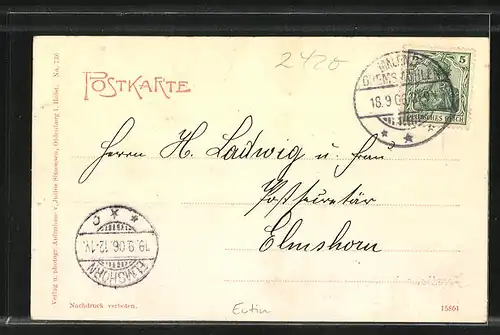 2420
POSTKARTE
5
18.9.06
DEUTSCHES REICH
Herrn H. Ladwig u. Frau
Postsecretär
Elmshorn
19.9.06.12-1N.
ELMSHORN
Verlag u. photogr. Aufnahme v. Julius Simonsen, Oldenburg i. Holst. No. 726
Nachdruck verboten.
Eutin
15861